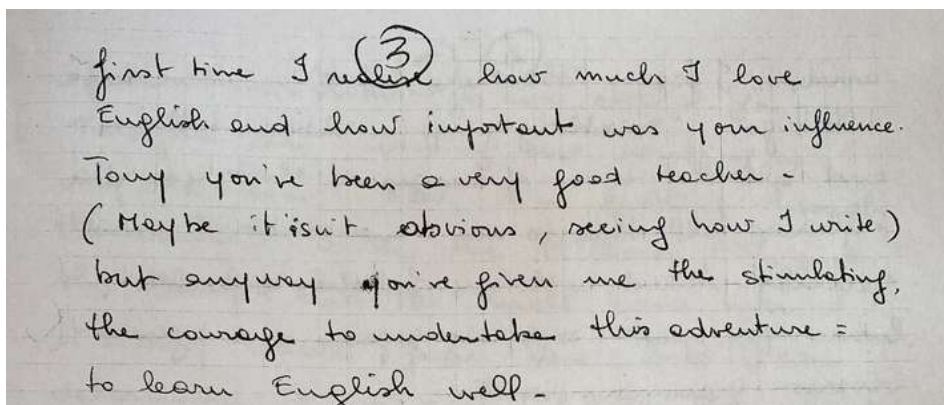 3
first time I realise how much I love
English and how important was your influence.
Tony you've been a very good teacher -
(Maybe it isn't obvious, seeing how I write)
but anyway you've given me the stimulating,
the courage to undertake this adventure =
to learn English well -